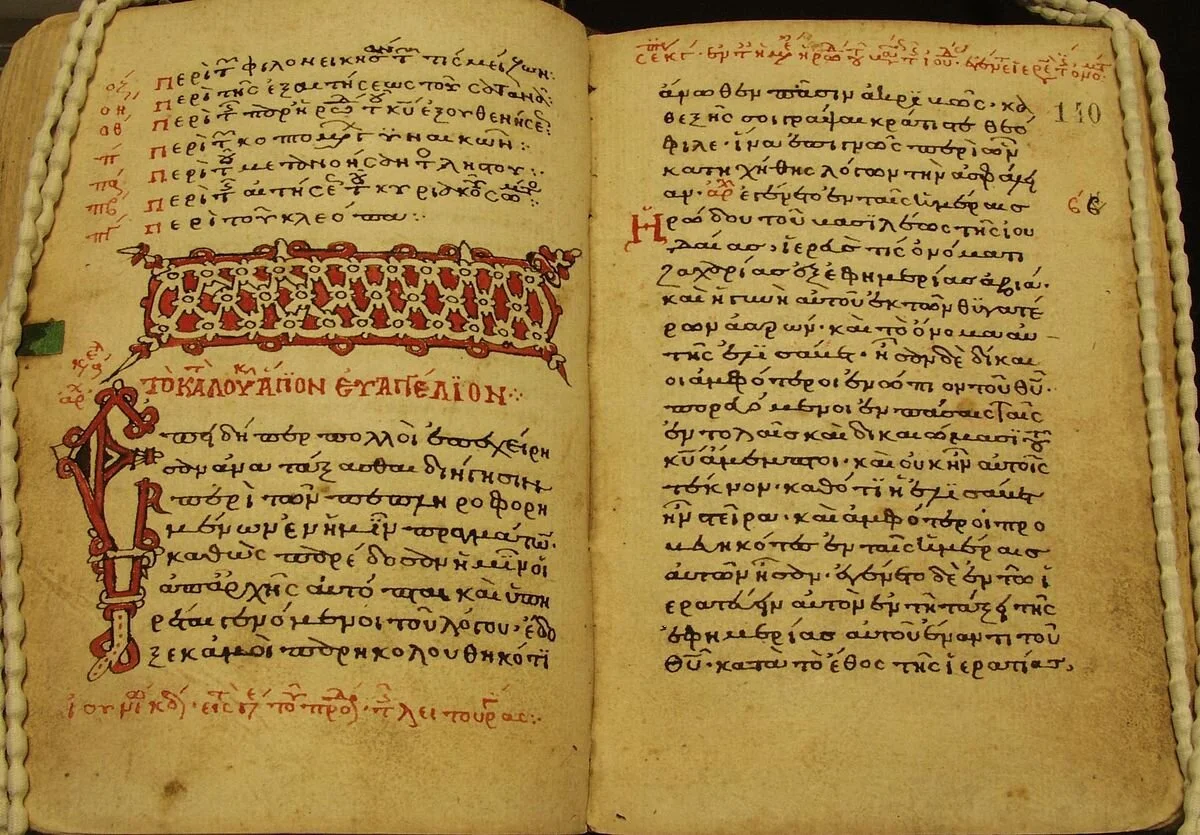 Περὶ τῆς φιλονεικίας τίς μείζων:
οη Περὶ τῆς ἐξαιτήσεως τοῦ σατανᾶ:
οθ Περὶ τ
π Περὶ τ κοπτομ γυναικῶν:
πα Περὶ τοῦ μετανοήσαντος ληστοῦ:
πβ Περὶ τῆς αἰτήσε τ κυριακοῦ σώμ
πγ Περὶ τοῦ κλεόπα:
ΤΟ Κ Τ ΛΟΥΚΑΝ ΑΓΙΟΝ ΕΥΑΓΓΕΛΙΟΝ
Ἐπειδήπερ πολλοὶ ἐπεχείρη
σαν ἀνατάξασθαι διήγησιν
περὶ τῶν πεπληροφορη
μένων ἐν ἡμῖν πραγμάτων·
καθὼς παρέδοσαν ἡμῖν οἱ
ἀπαρχῆς αὐτόπται καὶ ὑπη
ρέται γενόμενοι τοῦ λόγου· ἔδο
ξε κἀμοὶ παρηκολουθηκότι
140
ἄνωθεν πᾶσιν ἀκριβῶς· κα
θεξῆς σοι γράψαι κράτιστε θεό
φιλε· ἵνα ἐπιγνῶς περὶ ὧν
κατηχήθης λόγων τὴν ἀσφάλει
αν· ἀρχ ἐγένετο ἐν ταῖς ἡμέραις
Ἡρώδου τοῦ βασιλέως τῆς ἰου
δαίας, ἱερεύς τις ὀνόματι
ζαχαρίας ἐξ ἐφημερίας ἀβιά·
καὶ ἡ γυνὴ αὐτοῦ ἐκ τῶν θυγατέ
ρων ἀαρών· καὶ τὸ ὄνομα αὐ
τῆς ἐλισάβετ· ἦσαν δὲ δίκαι
οι ἀμφότεροι ἐνώπιον τοῦ θῦ·
πορευόμενοι ἐν πάσαις ταῖς
ἐντολαῖς καὶ δικαιώμασι τοῦ
κῦ ἄμεμπτοι· καὶ οὐκ ἦν αὐτοῖς
τέκνον· καθότι ἡ ἐλισάβετ
ἦν στεῖρα· καὶ ἀμφότεροι προ
βεβηκότες ἐν ταῖς ἡμέραις
αὐτῶν ἦσαν· ἐγένετο δὲ ἐν τῶ ἱ
ερατεύειν αὐτὸν ἐν τῇ τάξει τῆς
ἐφημερίας αὐτοῦ ἔναντι τοῦ
θῦ· κατὰ τὸ ἔθος τῆς ἱερατίας,